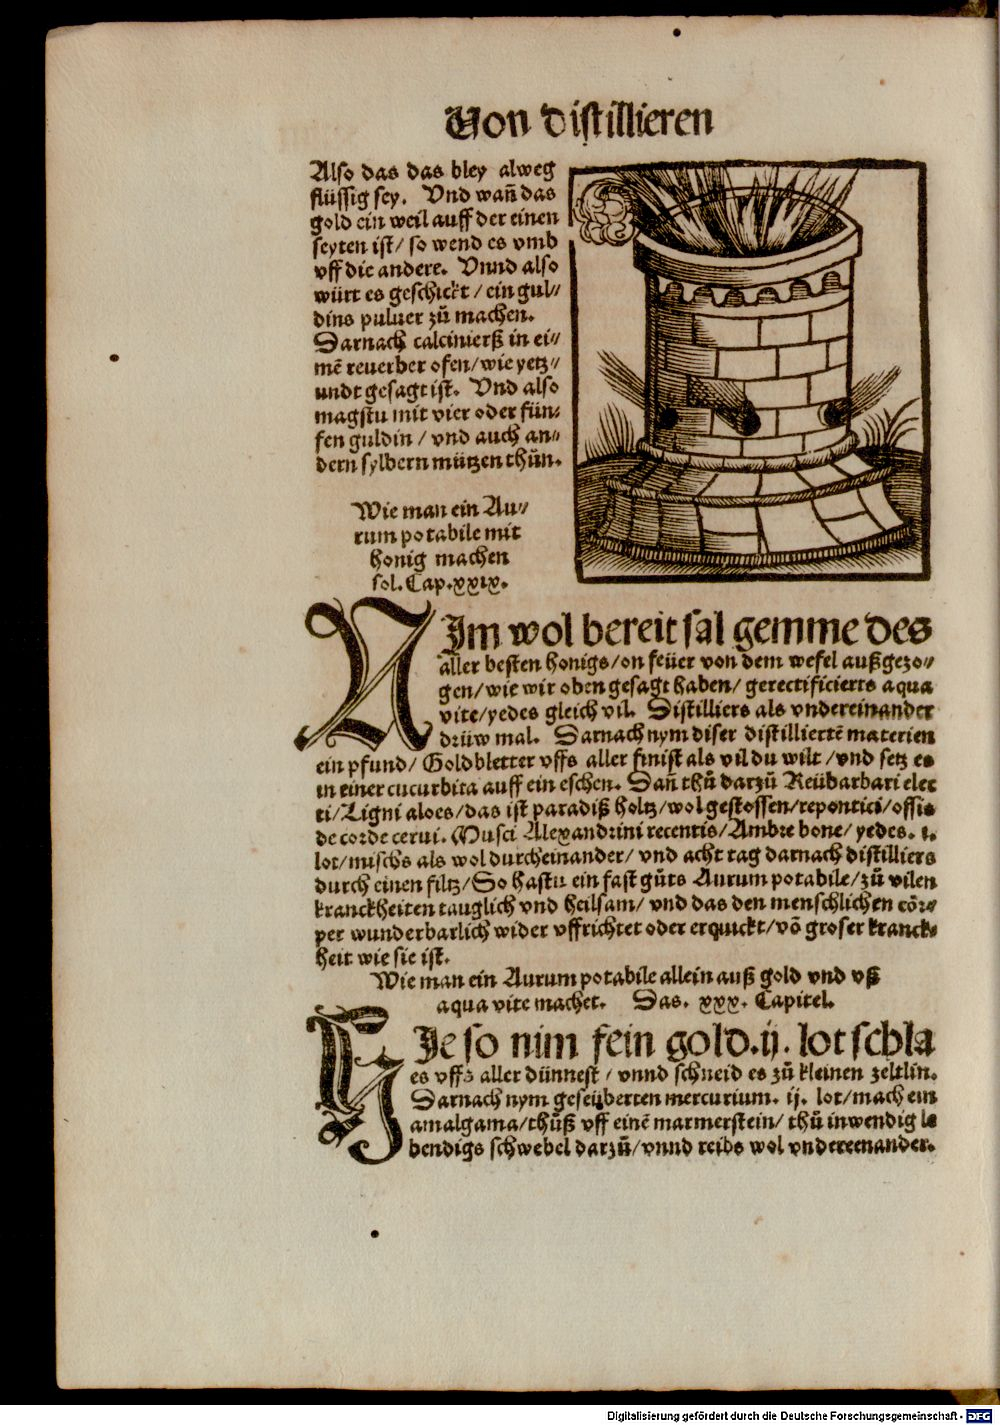 Von distillieren
Also das das bley alweg
flüssig sey. Vnd wañ das
gold ein weil auff der einen
seyten ist/ so wend es vmb
vff die andere. Vnnd also
würt es geschickt / ein gul//
dins puluer zů machen.
Darnach calcinierß in ei//
mē reuerber ofen/ wie yetz//
undt gesagt ist. Vnd also
magstu mit vier oder fün//
fen guldin / vnd auch an//
dern sylbern mützen thůn.
Wie man ein Au//
rum potabile mit
honig machen
sol. Cap. xxix.
NIm wol bereit sal gemme des
aller besten honigs/on feüer von dem wefel außgezo//
gen/ wie wir oben gesagt haben/ gerectificierts aqua
vite/ yedes gleich vil. Distilliers als vndereinander
drüw mal. Darnach nym diser distilliertē materien
ein pfund/ Goldbletter vffs aller finist als vil du wilt /vnd setz es
in einer cucurbita auff ein eschen. Dañ thů darzů Reübarbari elec
ti/ Ligni aloes/ das ist paradiß holtz/ wol gestossen/ repontici/ ossis
de corde cerui. Musci Alexandrini recentis/ Ambre bone/ yedes. i.
lot/ mischs als wol durcheinander/ vnd acht tag darnach distilliers
durch einen filtz/ So hastu ein fast gůts Aurum potabile/ zů vilen
kranckheiten tauglich vnd heilsam/ vnd das den menschlichen cör//
per wunderbarlich wider vffrichtet oder erquickt/ vō groser kranck//
heit wie sie ist.
Wie man ein Aurum potabile allein auß gold vnd vß
aqua vite machet. Das. xxx. Capitel.
HIe so nim fein gold. ij. lot schla
es vffs aller dünnest / vnnd schneid es zů kleinen zeltlin.
Darnach nym geseüberten mercurium. ij. lot/ mach ein
amalgama/ thůß vff einē marmerstein/ thů inwendig le
bendigs schwebel darzů/ vnnd reibs wol vndereenander.
Digitalisierung gefördert durch die Deutsche Forschungsgemeinschaft - DFG